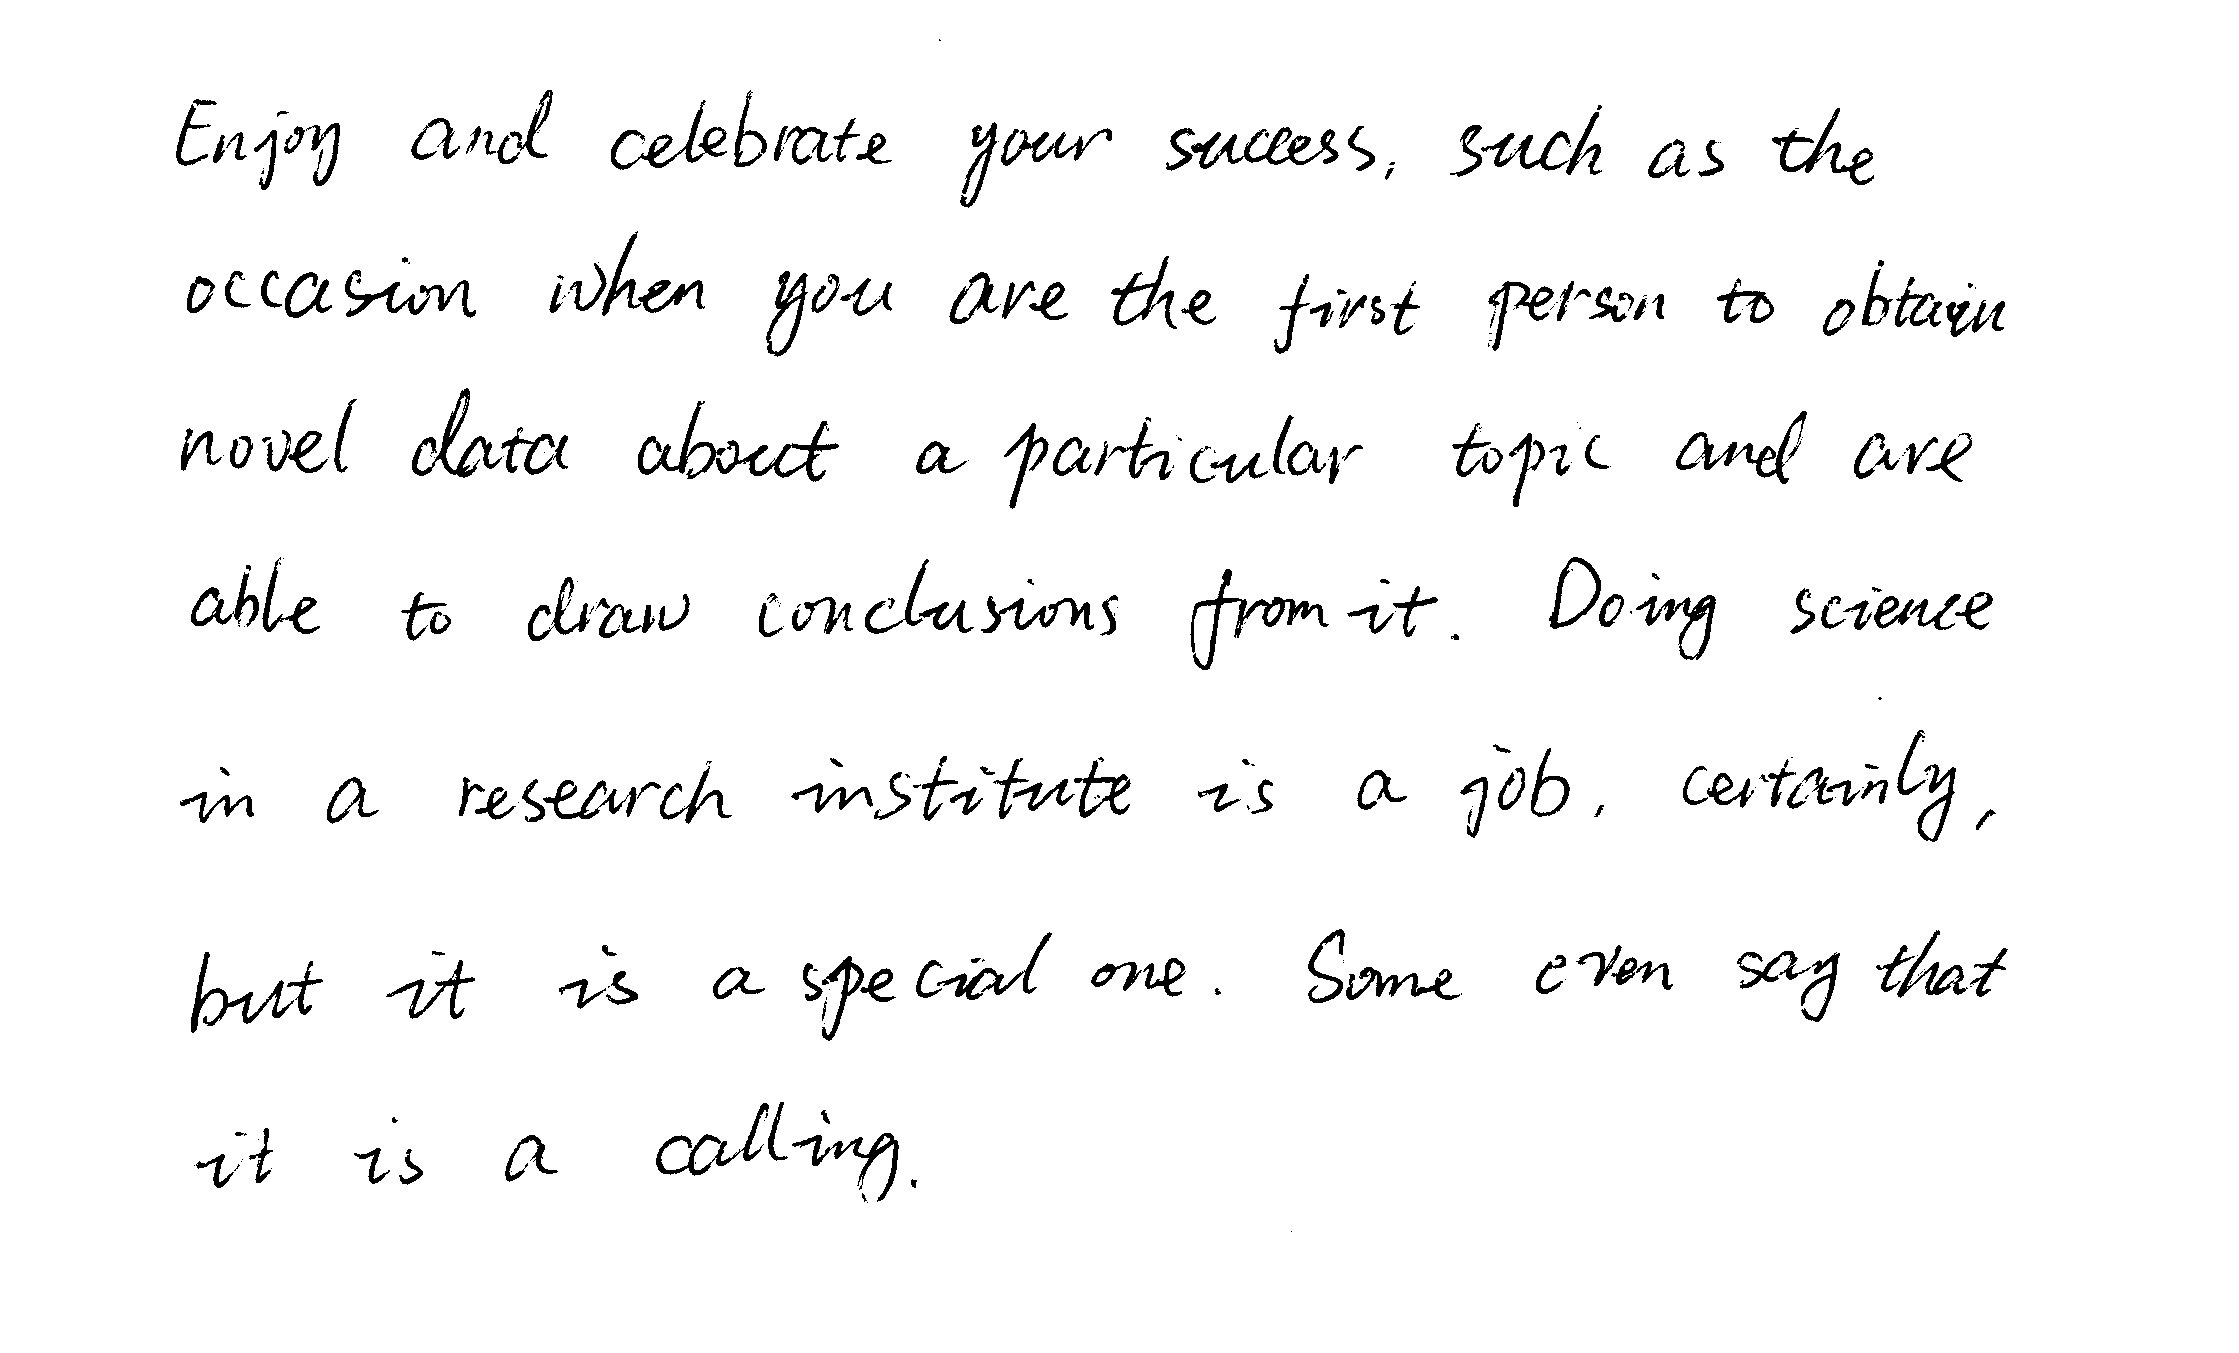 Enjoy and celebrate your success, such as the
occasion when you are the first person to obtain
novel data about a particular topic and are
able to draw conclusions from it. Doing science
in a research institute is a job, certainly,
but it is a special one. Some even say that
it is a calling.